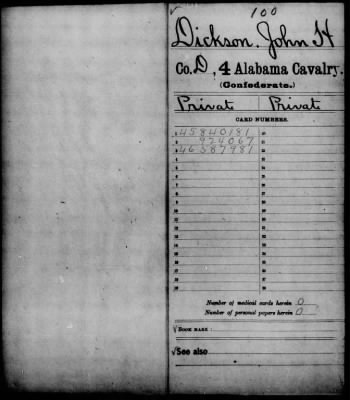 100
Dickson, John H
Co. D, 4 Alabama Cavalry.
(Confederate.)
Privat Privat
CARD NUMBERS.
1 45840181 20
2 924067 21
3 46587981 22
Number of medical cards herein 0
Number of personal papers herein 0
√ BOOK MARK:
√ See also